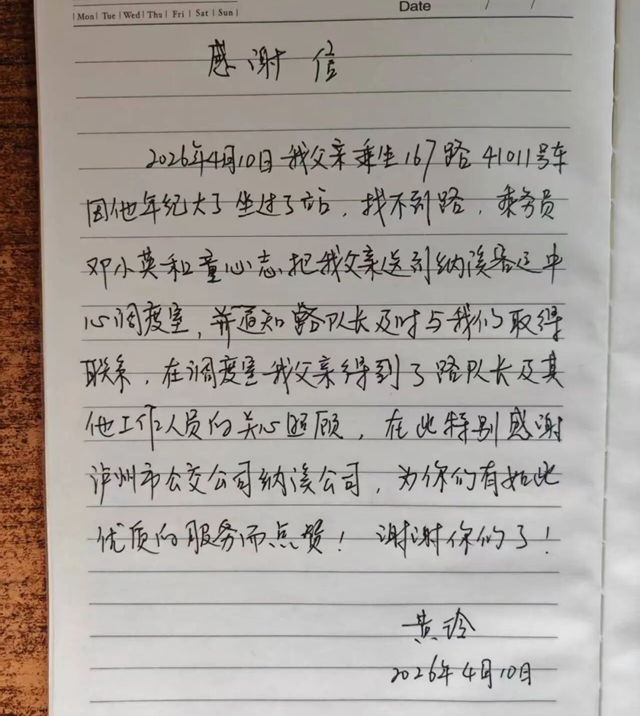 Mon | Tue | Wed | Thu | Fri | Sat | Sun |
Date / /
感谢信
2026年4月10日我父亲乘坐167路41011号车
因他年纪大了坐过了站,找不到路,乘务员
邓小英和童心志把我父亲送到纳溪客运中
心调度室,并通知路队长及时与我们取得
联系,在调度室我父亲得到了路队长及其
他工作人员的关心照顾,在此特别感谢
泸州市公交公司纳溪公司,为你们有如此
优质的服务而点赞!谢谢你们了!
黄玲
2026年4月10日